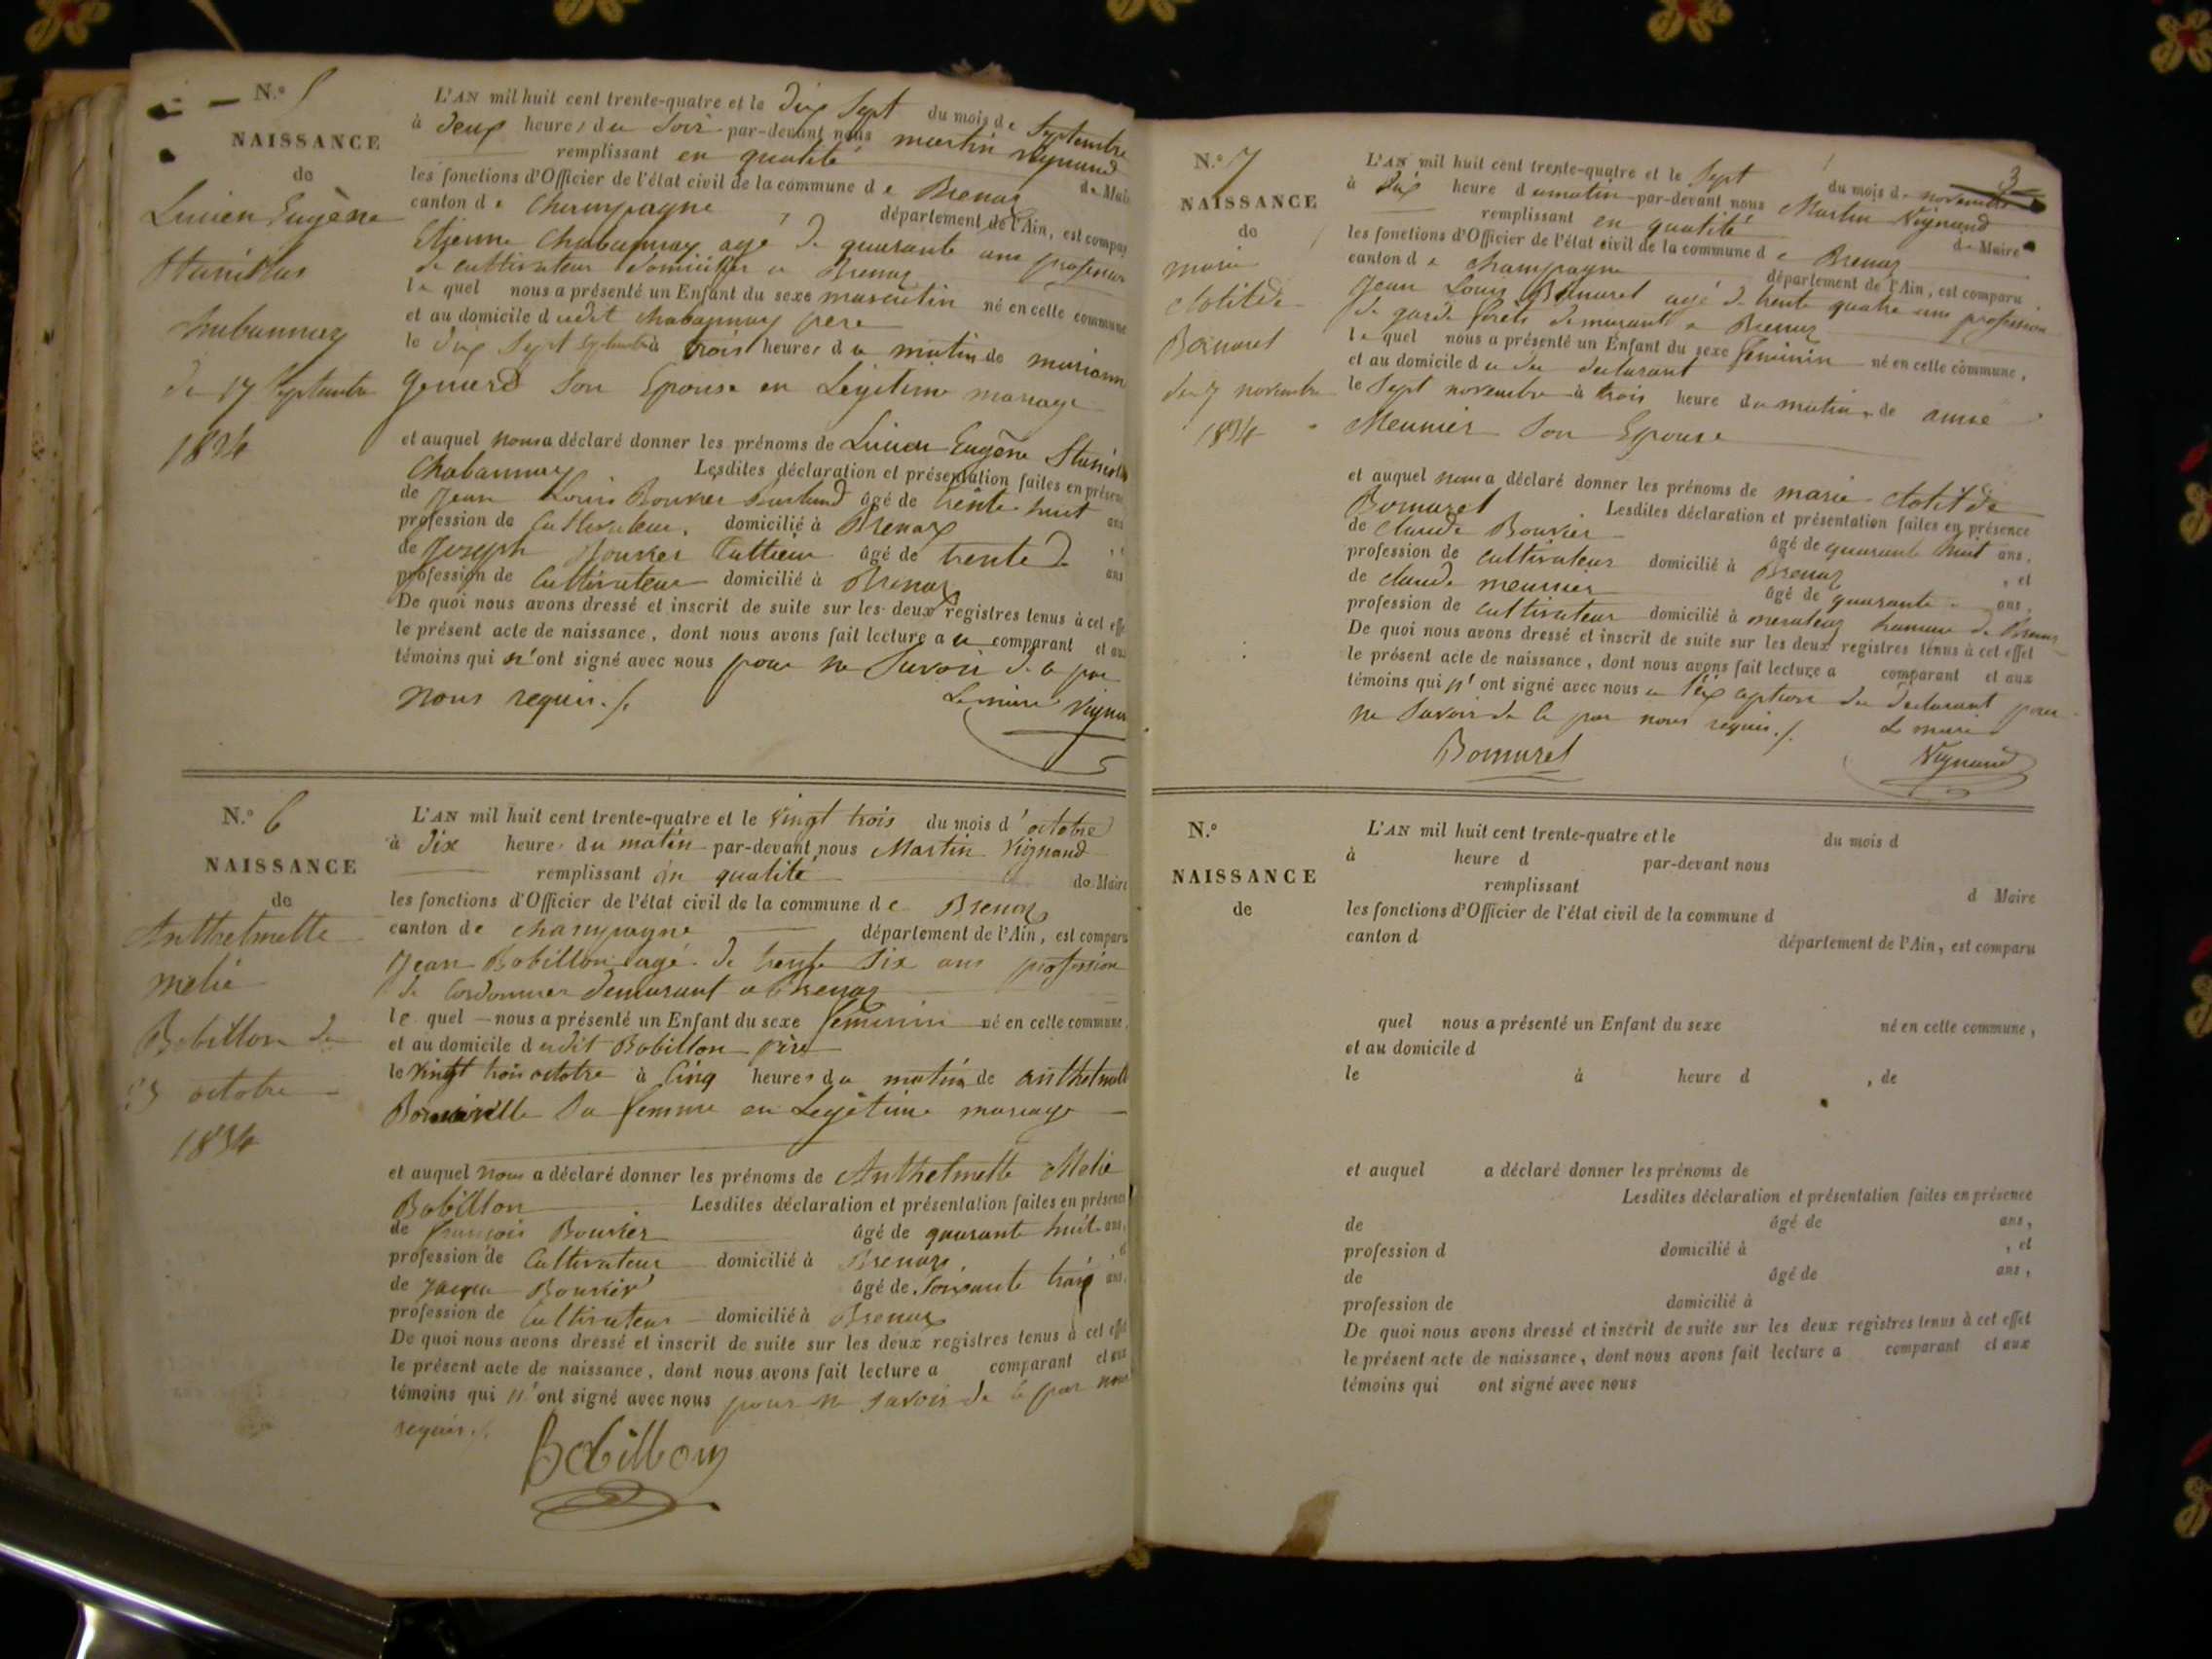 N.° 5
NAISSANCE
de
Lucien Eugène
Stanislas
Chabannay
du 17 Septembre
1834
L'AN mil huit cent trente-quatre et le dix Sept du mois de Septembre
à deux heures du Soir par-devant nous martin Vignand
remplissant en qualité de Maire
les fonctions d'Officier de l'état civil de la commune de Brenaz
canton de Champagne, département de l'Ain, est comparu
Etienne Chabannay agé de quarante ans profession
de cultivateur domicilier a Brenaz
le quel nous a présenté un Enfant du sexe masculin né en cette commune
et au domicile dudit Chabannay père
le dix Sept Septembre à trois heures du matin de mariann
Son Epouse en Légitime mariage
et auquel nous a déclaré donner les prénoms de Lucien Eugène Stanislas
Chabannay Lesdites déclaration et présentation faites en présence
de Jean Louis Bouvier âgé de trente huit ans
profession de Cultivateur, domicilié à Brenaz
de Joseph Bouvier âgé de trente
profession de Cultivateur domicilié à Brenaz
De quoi nous avons dressé et inscrit de suite sur les deux registres tenus à cet effet
le présent acte de naissance, dont nous avons fait lecture au comparant et aux
témoins qui n'ont signé avec nous pour ne Savoir de ce par
nous requis ./.
Le maire Vignand
N.° 6
NAISSANCE
de
Anthelmette
melie
Bobillon du
23 octobre
1834
L'AN mil huit cent trente-quatre et le vingt trois du mois d'octobre
à dix heures du matin par-devant nous Martin Vignand
remplissant en qualité de Maire
les fonctions d'Officier de l'état civil de la commune de Brenaz
canton de champagne département de l'Ain, est comparu
Jean Bobillon agé de trente Six ans profession
de Cordonnier demeurant a Brenaz
le quel nous a présenté un Enfant du sexe feminin né en cette commune,
et au domicile dudit Bobillon père
le vingt trois octobre à Cinq heures du matin de anthelmett
Sa femme en Legitime mariage
et auquel nous a déclaré donner les prénoms de Anthelmette Melie
Bobillon Lesdites déclaration et présentation faites en présence
de françois Bouvier âgé de quarante huit ans,
profession de Cultivateur domicilié à Brenaz, et
de Bouvier âgé de Soixante trois ans,
profession de Cultivateur domicilié à Brenaz
De quoi nous avons dressé et inscrit de suite sur les deux registres tenus à cet effet
le présent acte de naissance, dont nous avons fait lecture a comparant et aux
témoins qui n'ont signé avec nous pour ne savoir de ce par nous
requis ./.
Bobillon
3
N.° 7
NAISSANCE
de
marie
clotilde
Bornarel
du 7 novembre
1834
L'AN mil huit cent trente-quatre et le Sept du mois de novembre
à dix heure du matin par-devant nous Martin Vignand
remplissant en qualité de Maire
les fonctions d'Officier de l'état civil de la commune de Brenaz
canton de champagne département de l'Ain, est comparu
Jean Louis Bornarel agé de trente quatre ans profession
de garde forets demeurant a Brenaz
le quel nous a présenté un Enfant du sexe feminin né en cette commune,
et au domicile du dit declarant
le Sept novembre à trois heure du matin, de anne
Meunier Son Epouse
et auquel nous a déclaré donner les prénoms de marie clotilde
Bornarel Lesdites déclaration et présentation faites en présence
de claude Bouvier âgé de quarante huit ans,
profession de cultivateur domicilié à Brenaz, et
de claude meunier âgé de quarante ans,
profession de cultivateur domicilié à hameau de Brenaz
De quoi nous avons dressé et inscrit de suite sur les deux registres tenus à cet effet
le présent acte de naissance, dont nous avons fait lecture a comparant et aux
témoins qui n'ont signé avec nous a l'exception du declarant pour
ne Savoir de ce par nous requis ./. Le maire
Bornarel Vignand
N.°
NAISSANCE
de
L'AN mil huit cent trente-quatre et le du mois d
à heure d par-devant nous
remplissant d Maire
les fonctions d'Officier de l'état civil de la commune d
canton d département de l'Ain, est comparu
quel nous a présenté un Enfant du sexe né en cette commune,
et au domicile d
le à heure d , de
et auquel a déclaré donner les prénoms de
Lesdites déclaration et présentation faites en présence
de âgé de ans,
profession d domicilié à , et
de âgé de ans,
profession de domicilié à
De quoi nous avons dressé et inscrit de suite sur les deux registres tenus à cet effet
le présent acte de naissance, dont nous avons fait lecture a comparant et aux
témoins qui ont signé avec nous